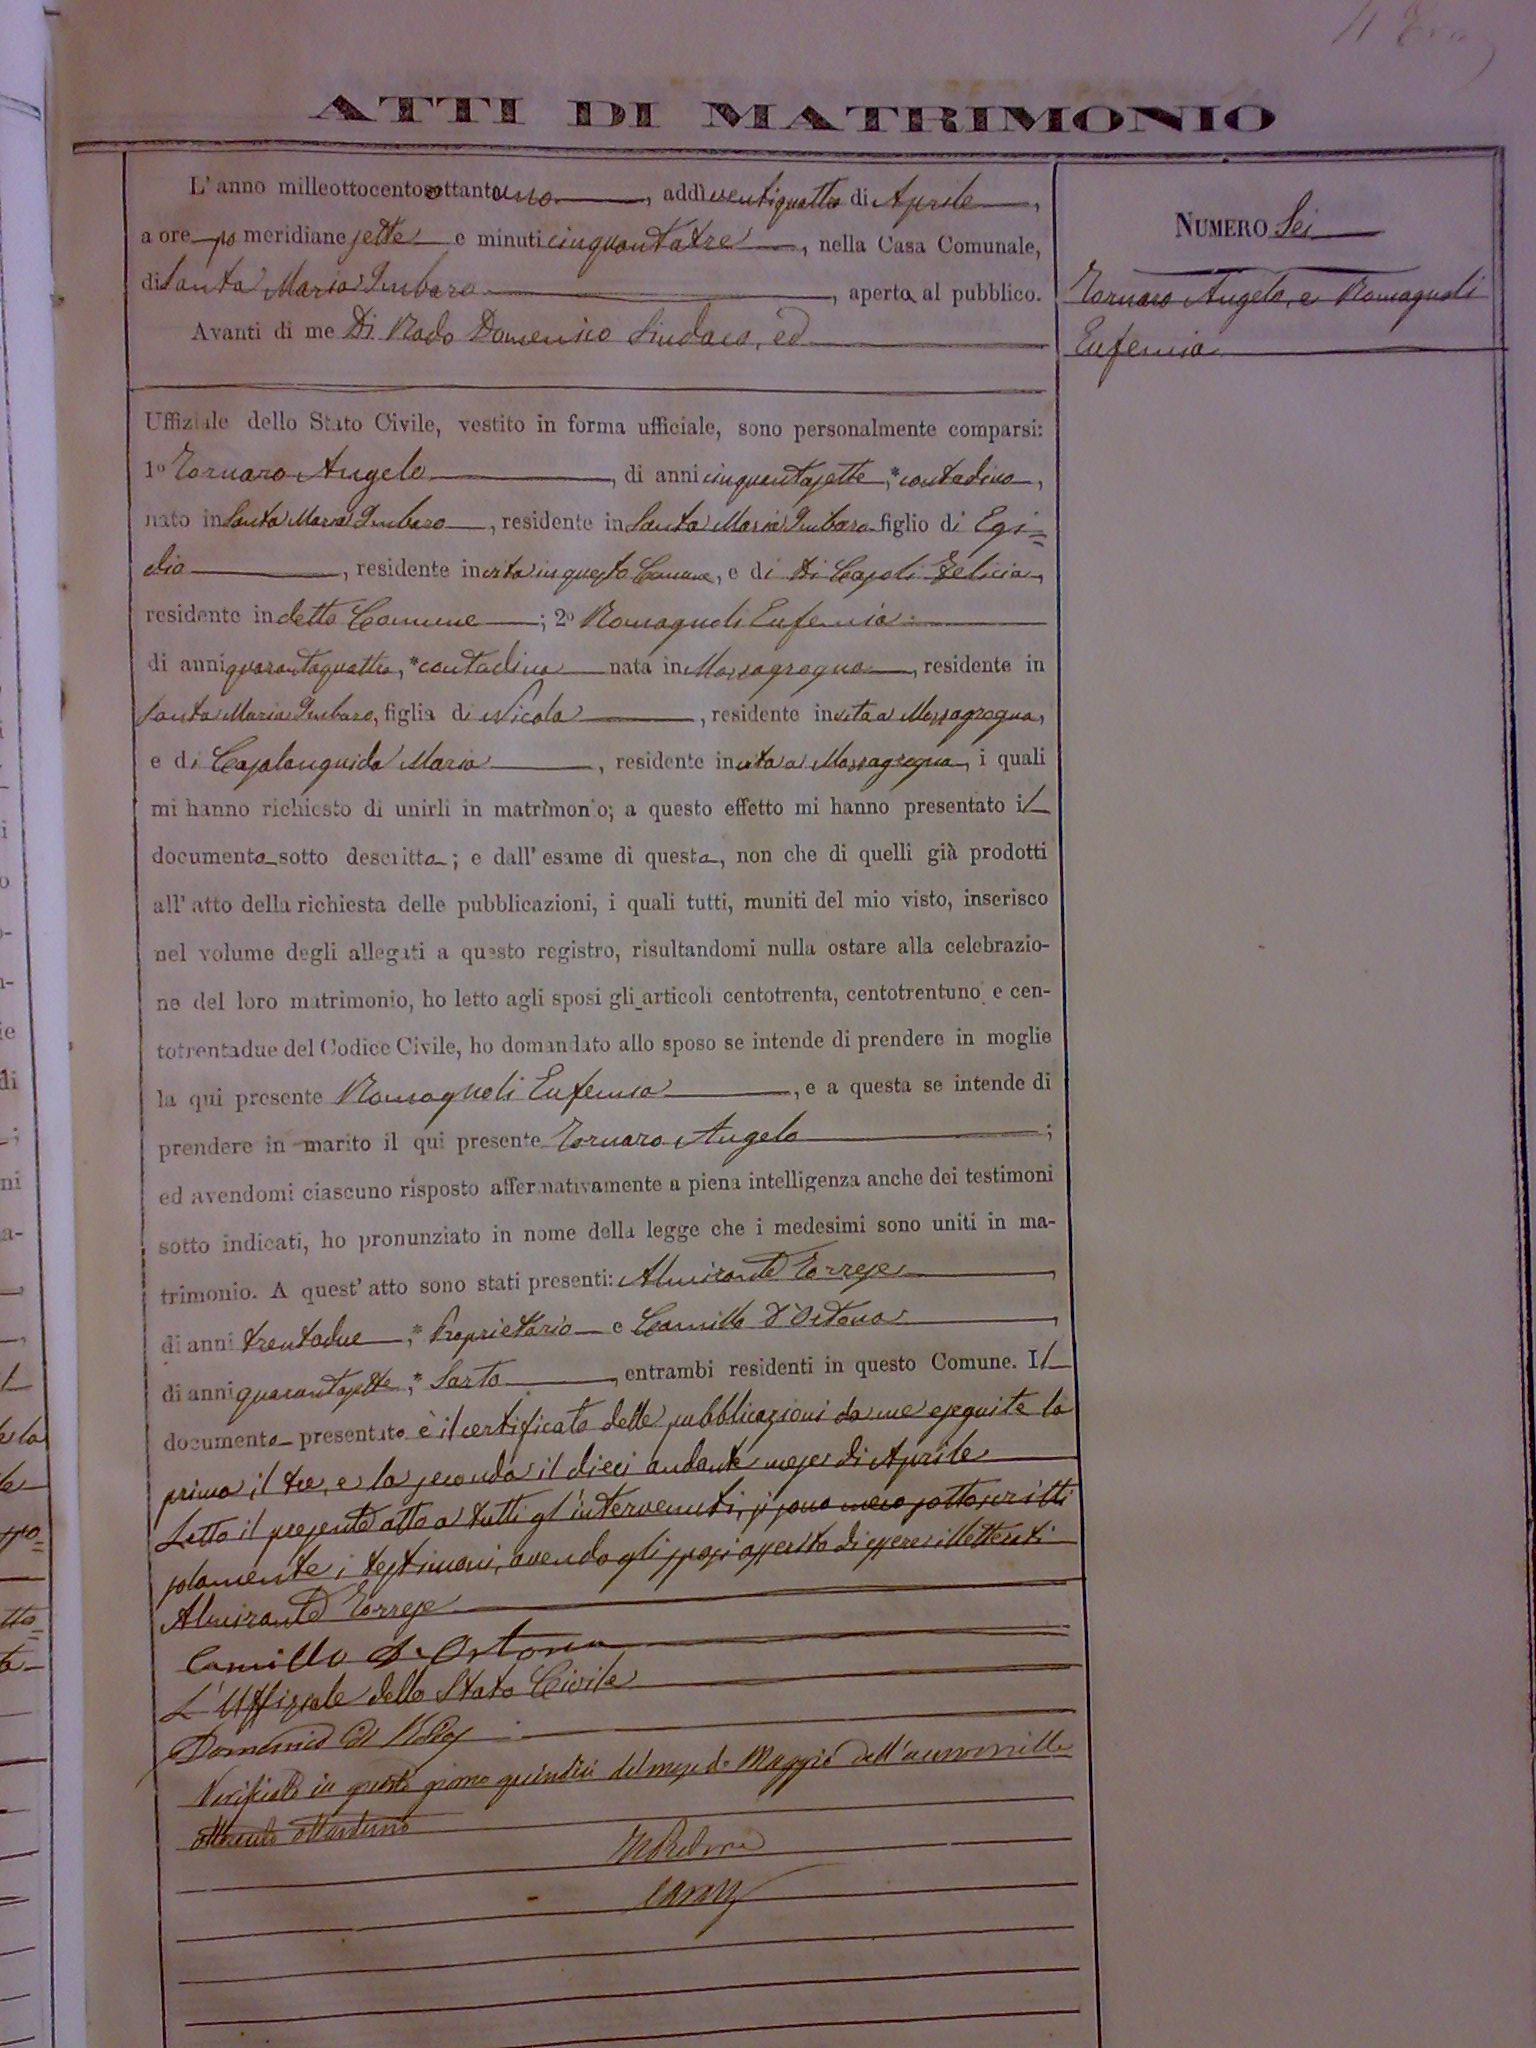 ATTI DI MATRIMONIO
L'anno milleottocentottantuno, addì ventiquattro di Aprile,
a ore po meridiane sette e minuti cinquantatre, nella Casa Comunale,
di Santa Maria Imbaro, aperta al pubblico.
Avanti di me Di Rado Domenico Sindaco, ed
Uffiziale dello Stato Civile, vestito in forma ufficiale, sono personalmente comparsi:
1º Tornaro Angelo, di anni cinquantasette,* contadino,
nato in Santa Maria Imbaro, residente in Santa Maria Imbaro figlio di Egi=
dio, residente in vita in questo Comune, e di Di Casoli Felicia,
residente in detto Comune; 2º Romagnoli Eufemia
di anni quarantaquattro,* contadina nata in Mozzagrogna, residente in
Santa Maria Imbaro, figlia di Nicola, residente in vita a Mozzagrogna,
e di Casalanguida Maria, residente in vita a Mozzagrogna, i quali
mi hanno richiesto di unirli in matrimonio; a questo effetto mi hanno presentato il
documento sotto descritto; e dall'esame di questo, non che di quelli già prodotti
all'atto della richiesta delle pubblicazioni, i quali tutti, muniti del mio visto, inserisco
nel volume degli allegati a questo registro, risultandomi nulla ostare alla celebrazio-
ne del loro matrimonio, ho letto agli sposi gli articoli centotrenta, centotrentuno e cen-
totrentadue del Codice Civile, ho domandato allo sposo se intende di prendere in moglie
la qui presente Romagnoli Eufemia, e a questa se intende di
prendere in marito il qui presente Tornaro Angelo;
ed avendomi ciascuno risposto affermativamente a piena intelligenza anche dei testimoni
sotto indicati, ho pronunziato in nome della legge che i medesimi sono uniti in ma-
trimonio. A quest'atto sono stati presenti: Almirante Torrese,
di anni trentadue,* Proprietario e Camillo D'Ortona,
di anni quarantasette,* Sarto, entrambi residenti in questo Comune. Il
documento presentato è il certificato delle pubblicazioni da me eseguite la
prima il tre, e la seconda il dieci andante mese di Aprile
Letto il presente atto a tutti gl'intervenuti, si sono meco sottoscritti
solamente i testimoni, avendo gli sposi asserito di essere illetterati
Almirante Torrese
Camillo D'Ortona
L'Uffiziale dello Stato Civile
Domenico Di Rado
Verificato in questo giorno quindici del mese di Maggio dell'anno mille
ottocento ottantuno
Il Pretore
NUMERO Sei
Tornaro Angelo, e Romagnoli
Eufemia